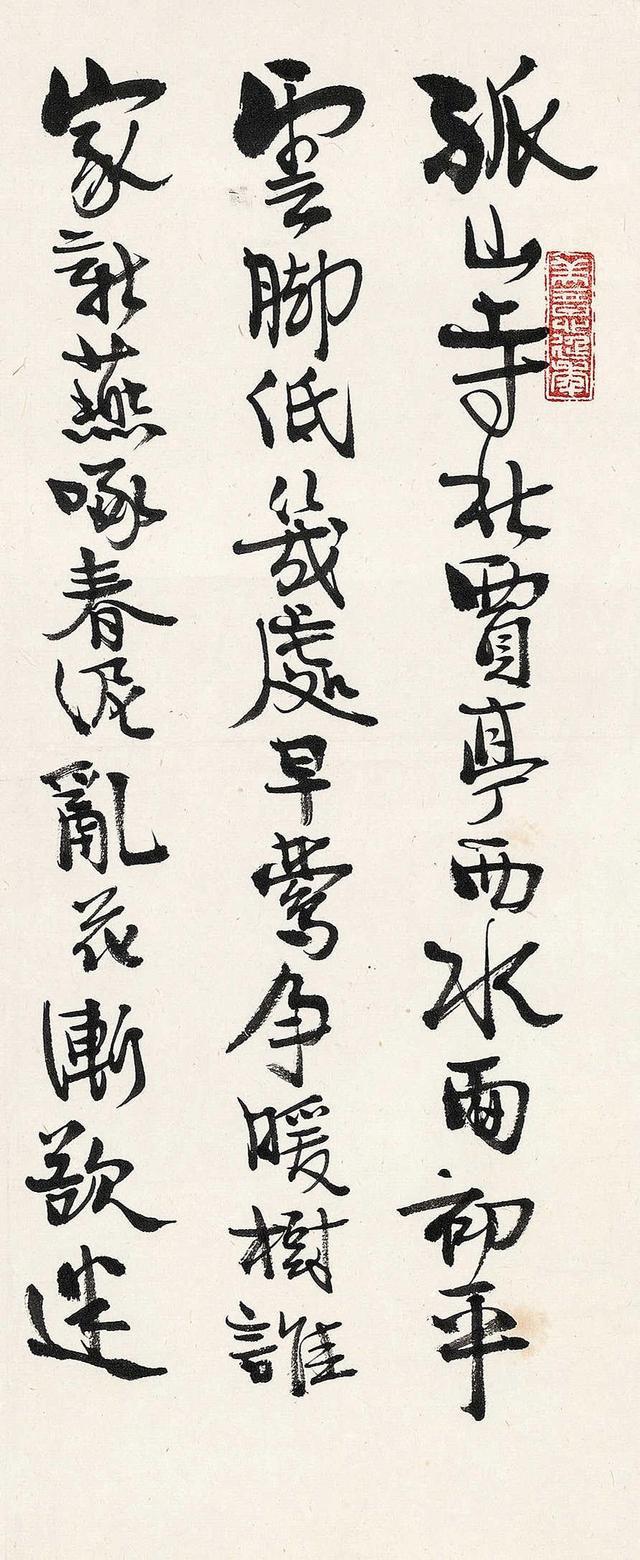 孤山寺北賈亭西水面初平
雲脚低幾處早鶯争暖樹誰
家新燕啄春泥亂花漸欲迷
美意延年